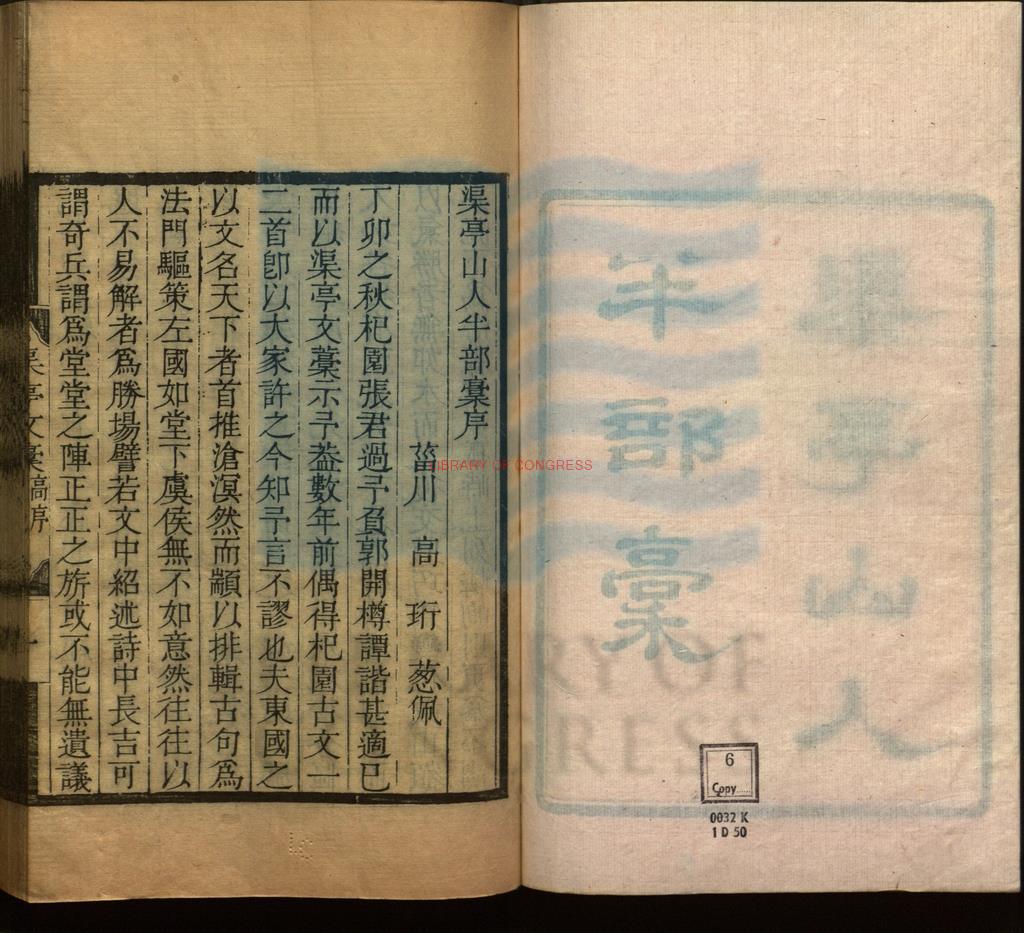 渠亭山人半部藁序
菑川 高 珩 葱佩
丁卯之秋杞園張君過予負郭開樽譚諧甚適已
而以渠亭文藁示予葢數年前偶得杞園古文一
二首卽以大家許之今知予言不謬也夫東國之
以文名天下者首推滄溟然而顓以排輯古句爲
法門驅策左國如堂下虞侯無不如意然往往以
人不易解者爲勝場譬若文中紹述詩中長吉可
謂奇兵謂爲堂堂之陣正正之旂或不能無遺議
渠亭文藁高序
一
半部藁
山人
LIBRARY OF CONGRESS
6
Copy
0032 K
1 D 50